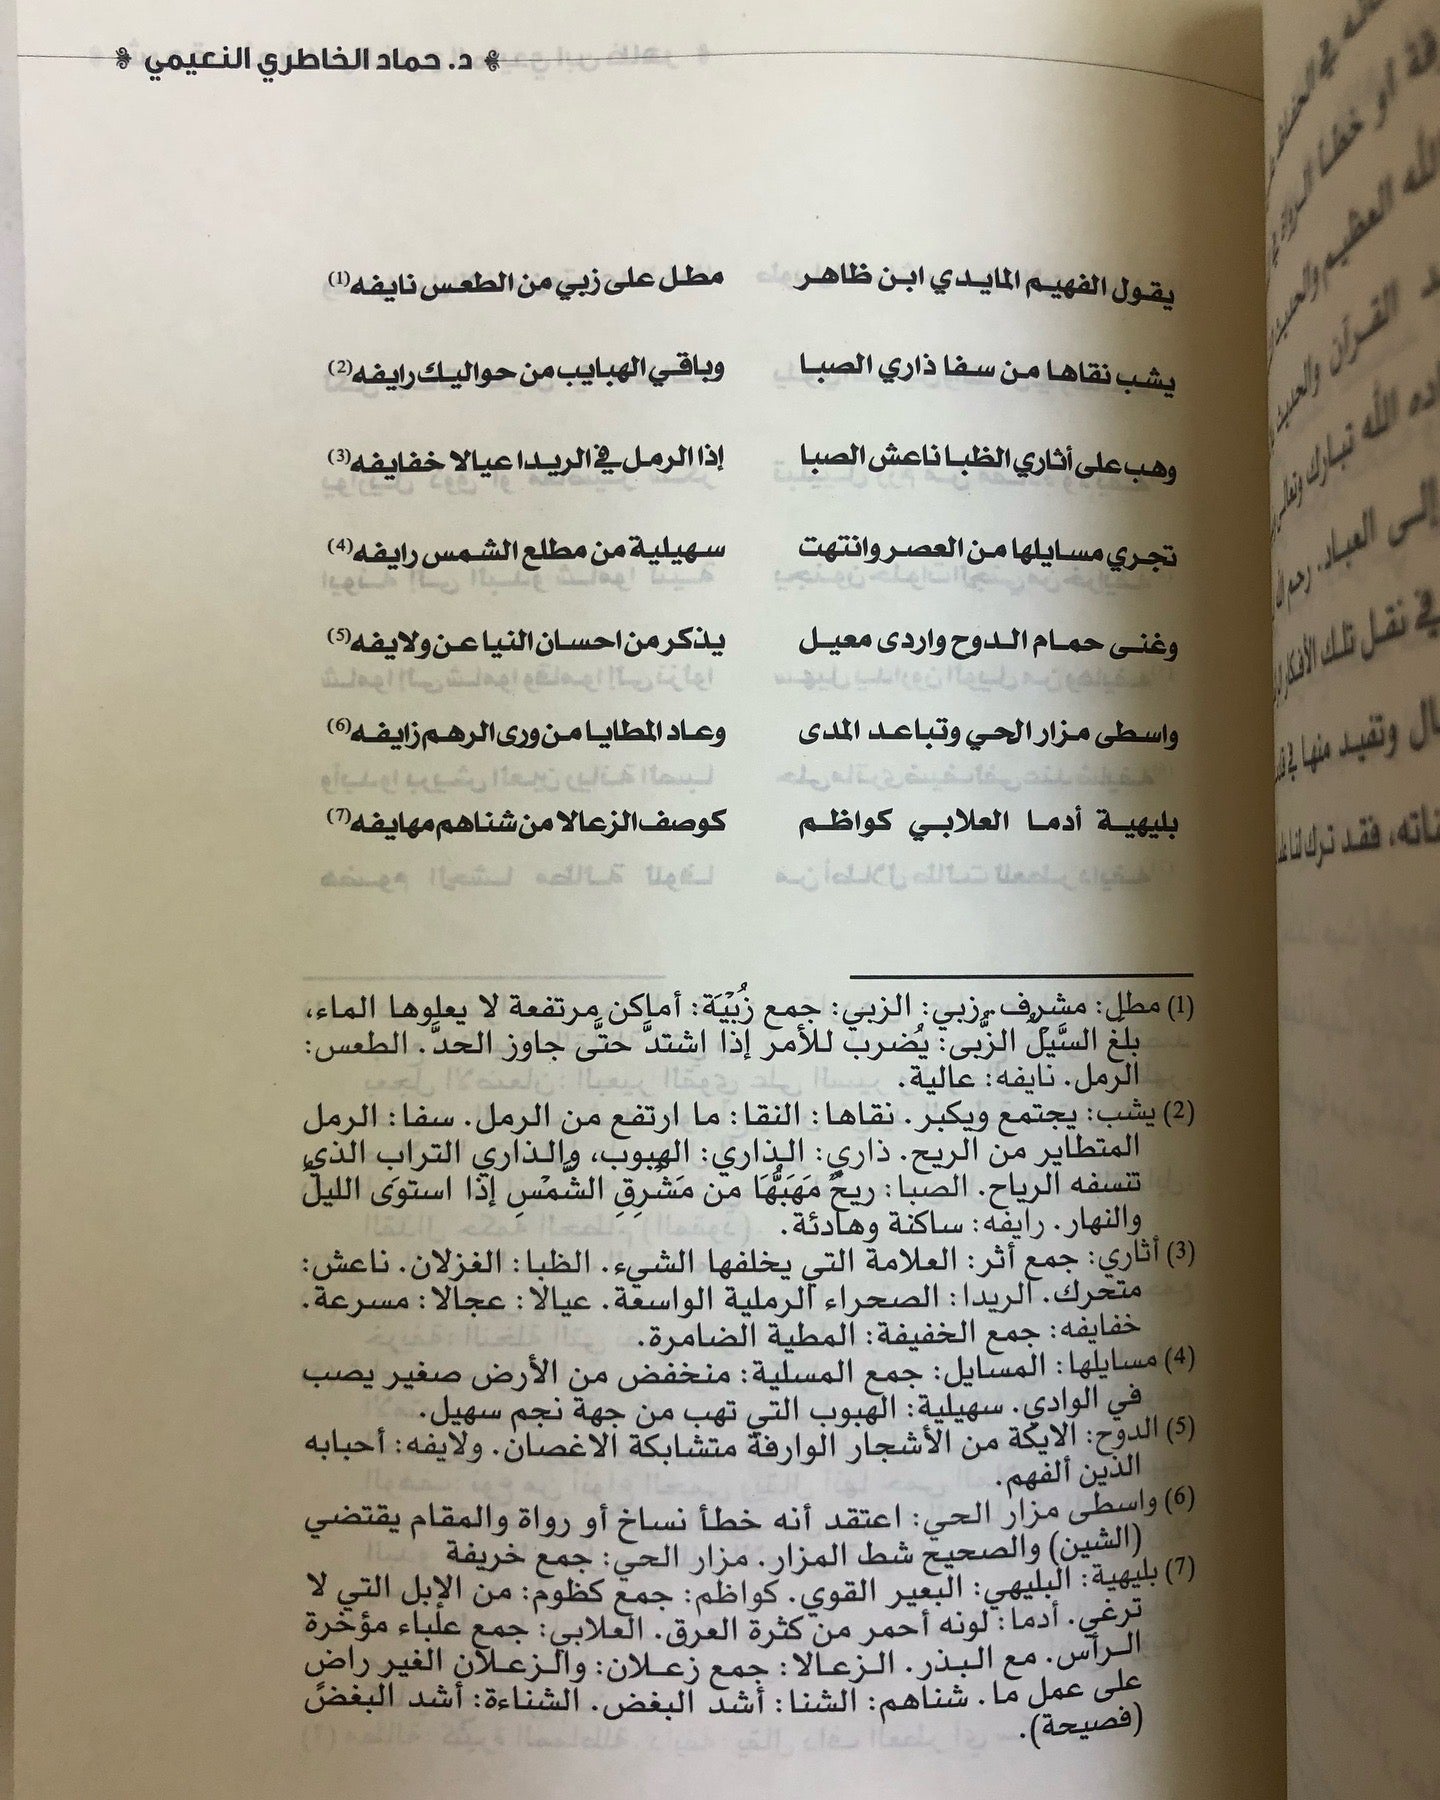 د. حماد الخاطري النعيمي
يقول الفهيم المايدي ابن ظاهر مطل على زبي من الطعس نايفه(1)
يشب نقاها من سفا ذاري الصبا وباقي الهبايب من حواليك رايفه(2)
وهب على أثاري الظبا ناعش الصبا إذا الرمل في الريدا عيالا خفايفه(3)
تجري مسايلها من العصر وانتهت سهيلية من مطلع الشمس رايفه(4)
وغنى حمام الدوح واردى معيل يذكر من احسان النيا عن ولايفه(5)
واسطى مزار الحي وتباعد المدى وعاد المطايا من ورى الرهم زايفه(6)
بليهية أدما العلابي كواظم كوصف الزعالا من شناهم مهايفه(7)
(1) مطل: مشرف. زبي: الزبي: جمع زُبْيَة: أماكن مرتفعة لا يعلوها الماء،
بلغ السَّيلُ الزُّبى: يُضرب للأمر إذا اشتدَّ حتَّى جاوز الحدَّ. الطعس:
الرمل. نايفه: عالية.
(2) يشب: يجتمع ويكبر. نقاها: النقا: ما ارتفع من الرمل. سفا: الرمل
المتطاير من الريح. ذاري: الذاري: الهبوب، والذاري التراب الذي
تنسفه الرياح. الصبا: ريحٌ مَهَبُّهَا من مَشْرِقِ الشَّمْسِ إذا استوَى الليلُ
والنهار. رايفه: ساكنة وهادئة.
(3) أثاري: جمع أثر: العلامة التي يخلفها الشيء. الظبا: الغزلان. ناعش:
متحرك. الريدا: الصحراء الرملية الواسعة. عيالا: عجالا: مسرعة.
خفايفه: جمع الخفيفة: المطية الضامرة.
(4) مسايلها: المسايل: جمع المسلية: منخفض من الأرض صغير يصب
في الوادي. سهيلية: الهبوب التي تهب من جهة نجم سهيل.
(5) الدوح: الايكة من الأشجار الوارفة متشابكة الاغصان. ولايفه: أحبابه
الذين ألفهم.
(6) واسطى مزار الحي: اعتقد أنه خطأ نساخ أو رواة والمقام يقتضي
(الشين) والصحيح شط المزار. مزار الحي: جمع خريفة
(7) بليهية: البليهي: البعير القوي. كواظم: جمع كظوم: من الإبل التي لا
ترغي. أدما: لونه أحمر من كثرة العرق. العلابي: جمع علباء مؤخرة
الرأس. مع البذر. الزعالا: جمع زعلان: والزعلان الغير راضٍ
على عمل ما. شناهم: الشنا: أشد البغض. الشناءة: أشد البغض
(فصيحة).